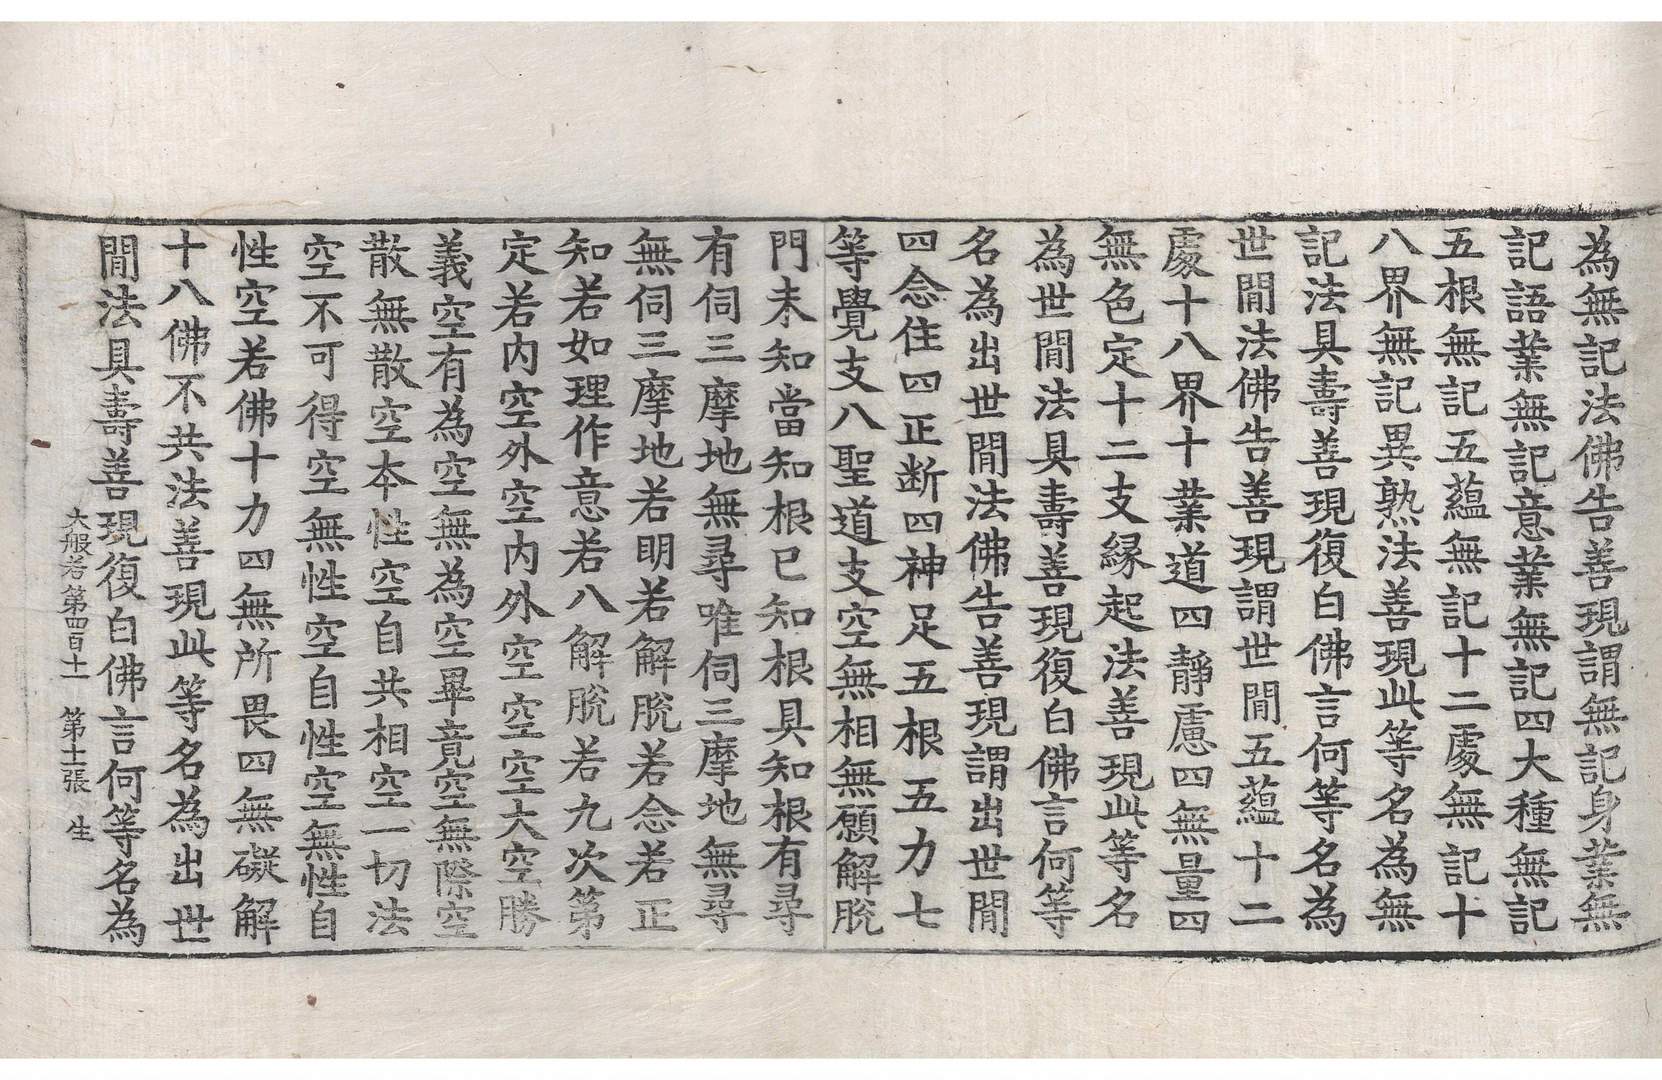 為無記法佛告善現謂無記身業無
記語業無記意業無記四大種無記
五根無記五蘊無記十二處無記十
八界無記異熟法善現此等名為無
記法具壽善現復白佛言何等名為
世閒法佛告善現謂世閒五蘊十二
處十八界十業道四靜慮四無量四
無色定十二支緣起法善現此等名
為世閒法具壽善現復白佛言何等
名為出世閒法佛告善現謂出世閒
四念住四正断四神足五根五力七
等覺支八聖道支空無相無願解脫
門未知當知根已知根具知根有尋
有伺三摩地無尋唯伺三摩地無尋
無伺三摩地若明若解脫若念若正
知若如理作意若八解脫若九次第
定若內空外空內外空空空大空勝
義空有為空無為空畢竟空無際空
散無散空本性空自共相空一切法
空不可得空無性空自性空無性自
性空若佛十力四無所畏四無礙解
十八佛不共法善現此等名為出世
閒法具壽善現復白佛言何等名為
大般若第四百十一　第十二張　生